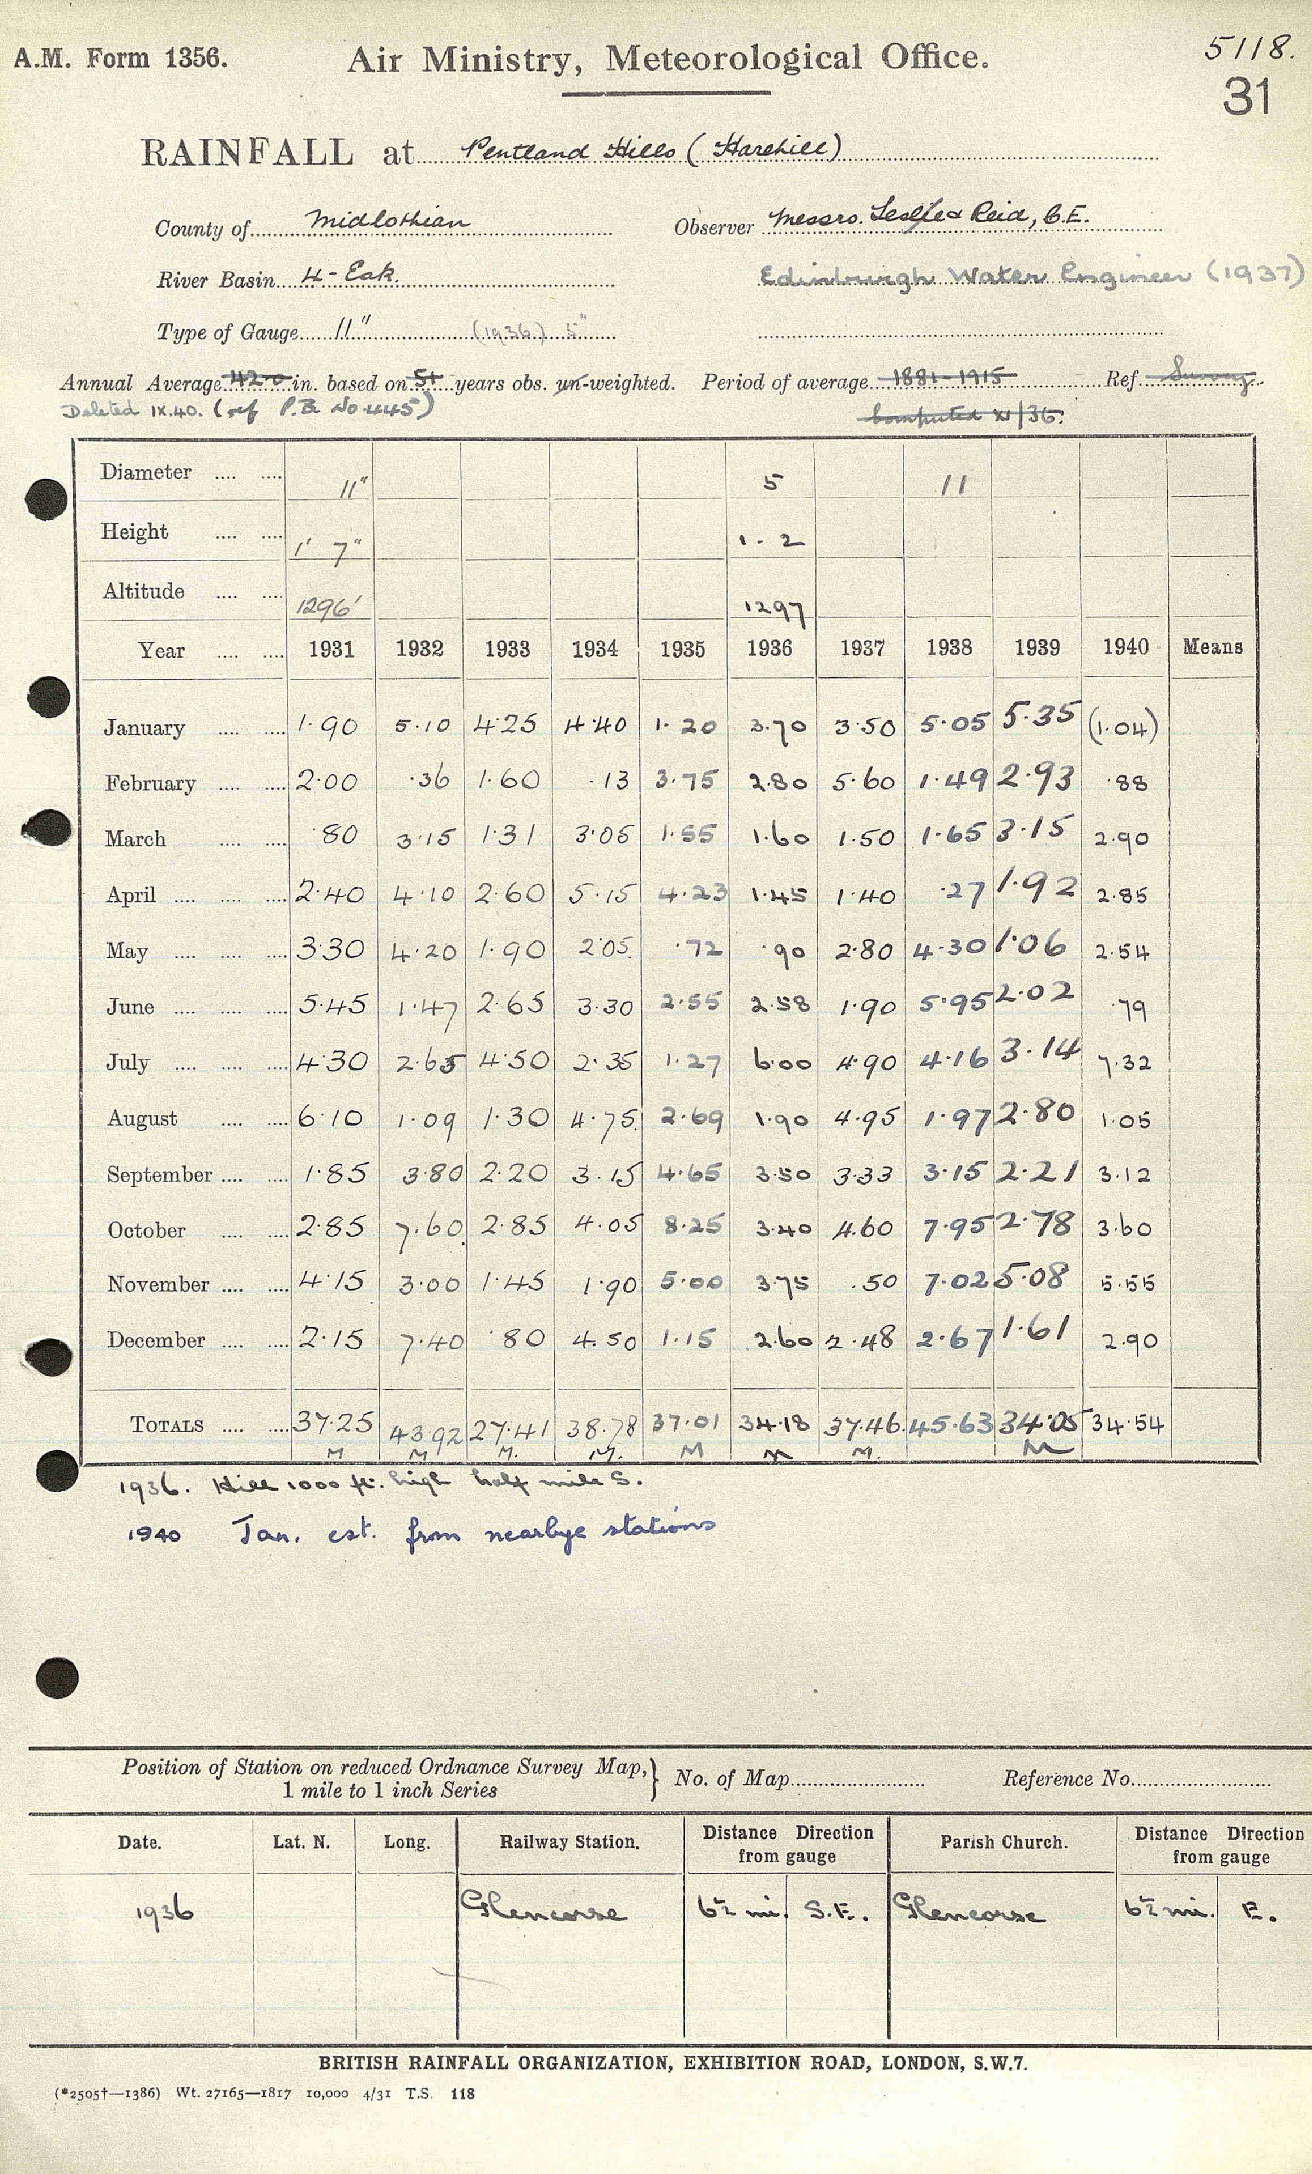 A.M. Form 1356.
Air Ministry, Meteorological Office.
5118.
31
RAINFALL at Pentland Hills (Harehill)
County of Midlothian
Observer Messrs. Leslie & Reid, C.E.
River Basin 4-Esk.
Edinburgh Water Engineer (1937)
Type of Gauge 11" (1936) 5"
Annual Average 42.0 in. based on 51 years obs. un-weighted. Period of average 1881-1915 Ref. Survey
Deleted IX.40. (ref P.B. No 445) Computed XI/36.
Diameter 11" 5 11
Height 1' 7" 1-2
Altitude 1296' 1297
Year 1931 1932 1933 1934 1935 1936 1937 1938 1939 1940 Means
January 1.90 5.10 4.25 4.40 1.20 3.70 3.50 5.05 5.35 (1.04)
February 2.00 .36 1.60 .13 3.75 2.80 5.60 1.49 2.93 .88
March .80 3.15 1.31 3.05 1.55 1.60 1.50 1.65 3.15 2.90
April 2.40 4.10 2.60 5.15 4.23 1.45 1.40 .27 1.92 2.85
May 3.30 4.20 1.90 2.05 .72 .90 2.80 4.30 1.06 2.54
June 5.45 1.47 2.65 3.30 2.55 2.58 1.90 5.95 2.02 .79
July 4.30 2.65 4.50 2.35 1.27 6.00 4.90 4.16 3.14 7.32
August 6.10 1.09 1.30 4.75 2.69 1.90 4.95 1.97 2.80 1.05
September 1.85 3.80 2.20 3.15 4.65 3.50 3.33 3.15 2.21 3.12
October 2.85 7.60 2.85 4.05 8.25 3.40 4.60 7.95 2.78 3.60
November 4.15 3.00 1.45 1.90 5.00 3.75 .50 7.02 5.08 5.55
December 2.15 7.40 .80 4.50 1.15 2.60 2.48 2.67 1.61 2.90
TOTALS 37.25 43.92 27.41 38.78 37.01 34.18 37.46 45.63 34.05 34.54
M M M. M. M M M. M
1936. Hill 1000 ft. high half mile S.
1940 Jan. est. from nearbye stations
Position of Station on reduced Ordnance Survey Map, 1 mile to 1 inch Series } No. of Map Reference No.
Date. Lat. N. Long. Railway Station. Distance Direction from gauge Parish Church. Distance Direction from gauge
1936 Glencorse 6½ mi. S.E. Glencorse 6½ mi. E.
BRITISH RAINFALL ORGANIZATION, EXHIBITION ROAD, LONDON, S.W.7.
(*2505†—1386) Wt. 27165—1817 10,000 4/31 T.S. 118